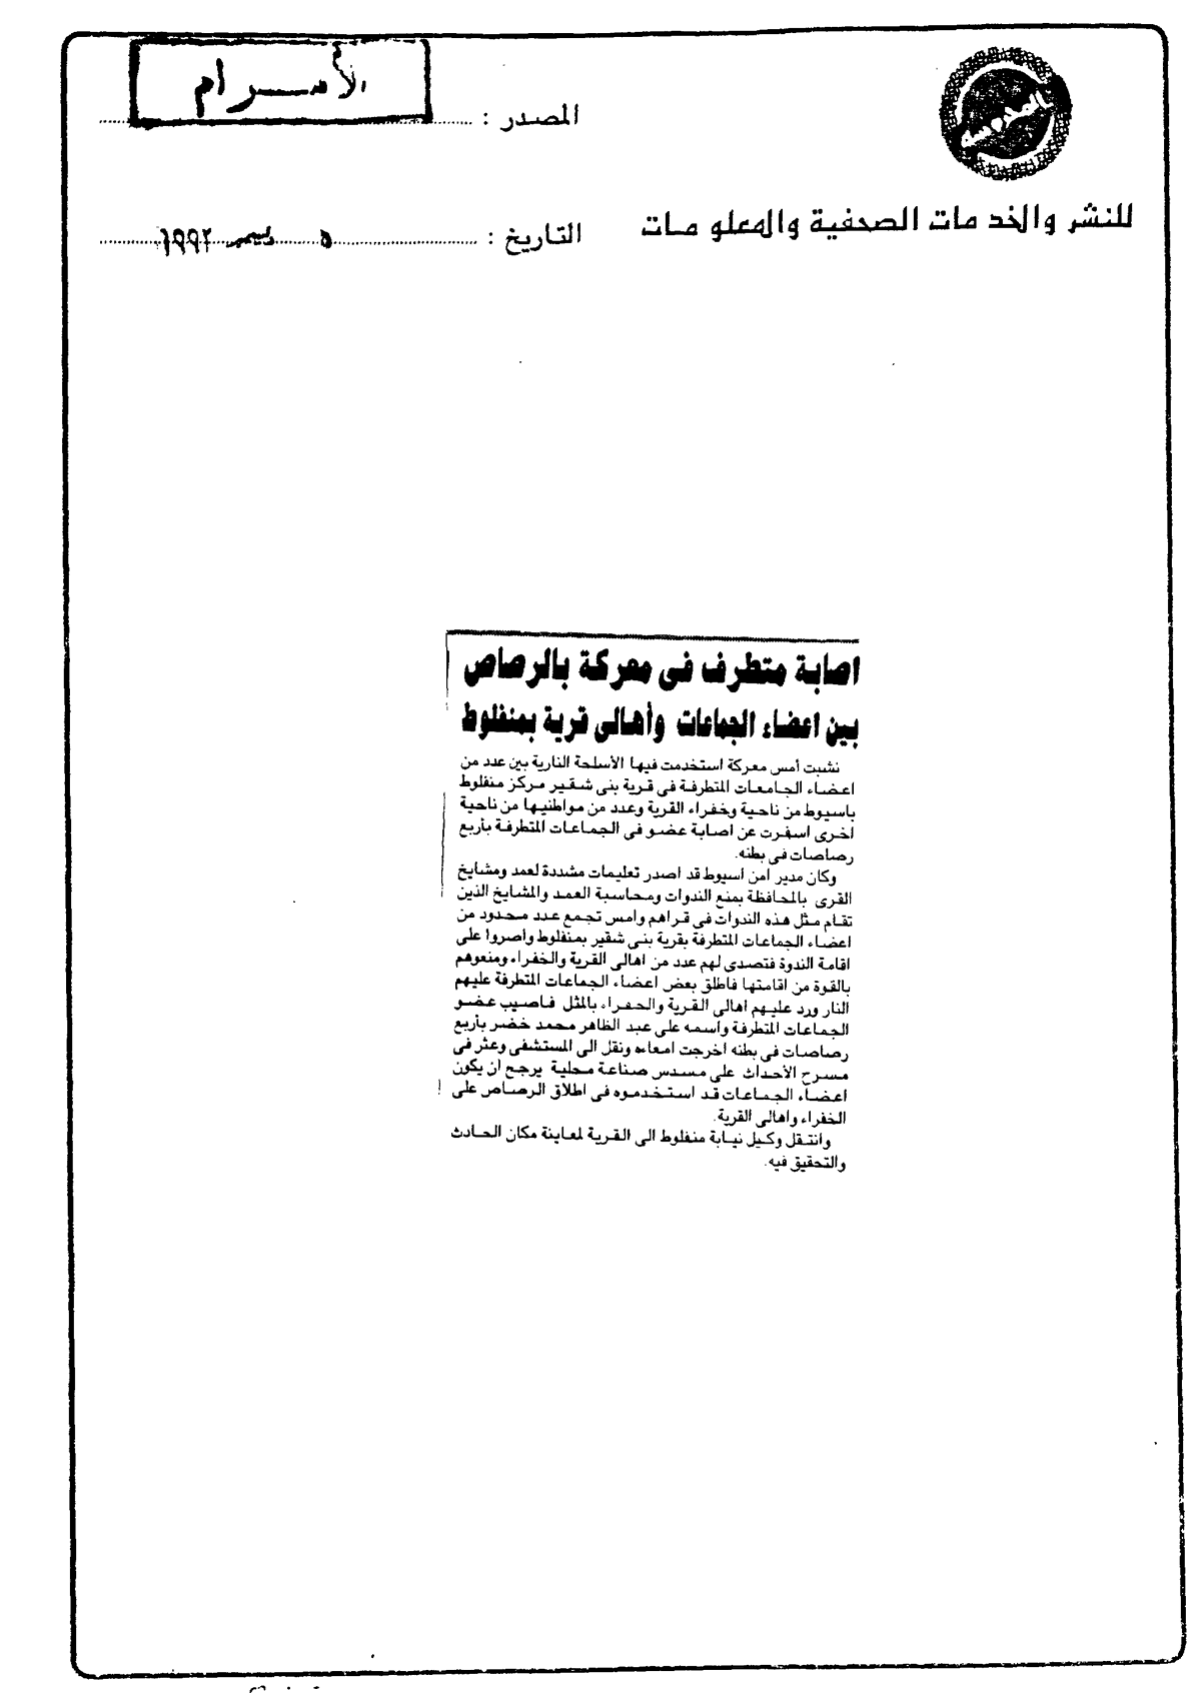 الأهرام
المصدر :
للنشر والخدمات الصحفية والمعلومات
التاريخ : ٥ ديسمبر ١٩٩٢
اصابة متطرف فى معركة بالرصاص
بين اعضاء الجماعات وأهالى قرية بمنفلوط
نشبت أمس معركة استخدمت فيها الأسلحة النارية بين عدد من
اعضاء الجامعات المتطرفة فى قرية بنى شقير مركز منفلوط
باسيوط من ناحية وخفراء القرية وعدد من مواطنيها من ناحية
اخرى اسفرت عن اصابة عضو فى الجماعات المتطرفة بأربع
رصاصات فى بطنه.
وكان مدير امن اسيوط قد اصدر تعليمات مشددة لعمد ومشايخ
القرى بالمحافظة بمنع الندوات ومحاسبة العمد والمشايخ الذين
تقام مثل هذه الندوات فى قراهم وامس تجمع عدد محدود من
اعضاء الجماعات المتطرفة بقرية بنى شقير بمنفلوط وأصروا على
اقامة الندوة فتصدى لهم عدد من اهالى القرية والخفراء ومنعوهم
بالقوة من اقامتها فاطلق بعض اعضاء الجماعات المتطرفة عليهم
النار ورد عليهم اهالى القرية والخفراء بالمثل فاصيب عضو
الجماعات المتطرفة واسمه على عبد الظاهر محمد خضر بأربع
رصاصات فى بطنه اخرجت امعاءه ونقل الى المستشفى وعثر فى
مسرح الأحداث على مسدس صناعة محلية يرجح ان يكون
اعضاء الجماعات قد استخدموه فى اطلاق الرصاص على
الخفراء واهالى القرية.
وانتقل وكيل نيابة منفلوط الى القرية لمعاينة مكان الحادث
والتحقيق فيه.